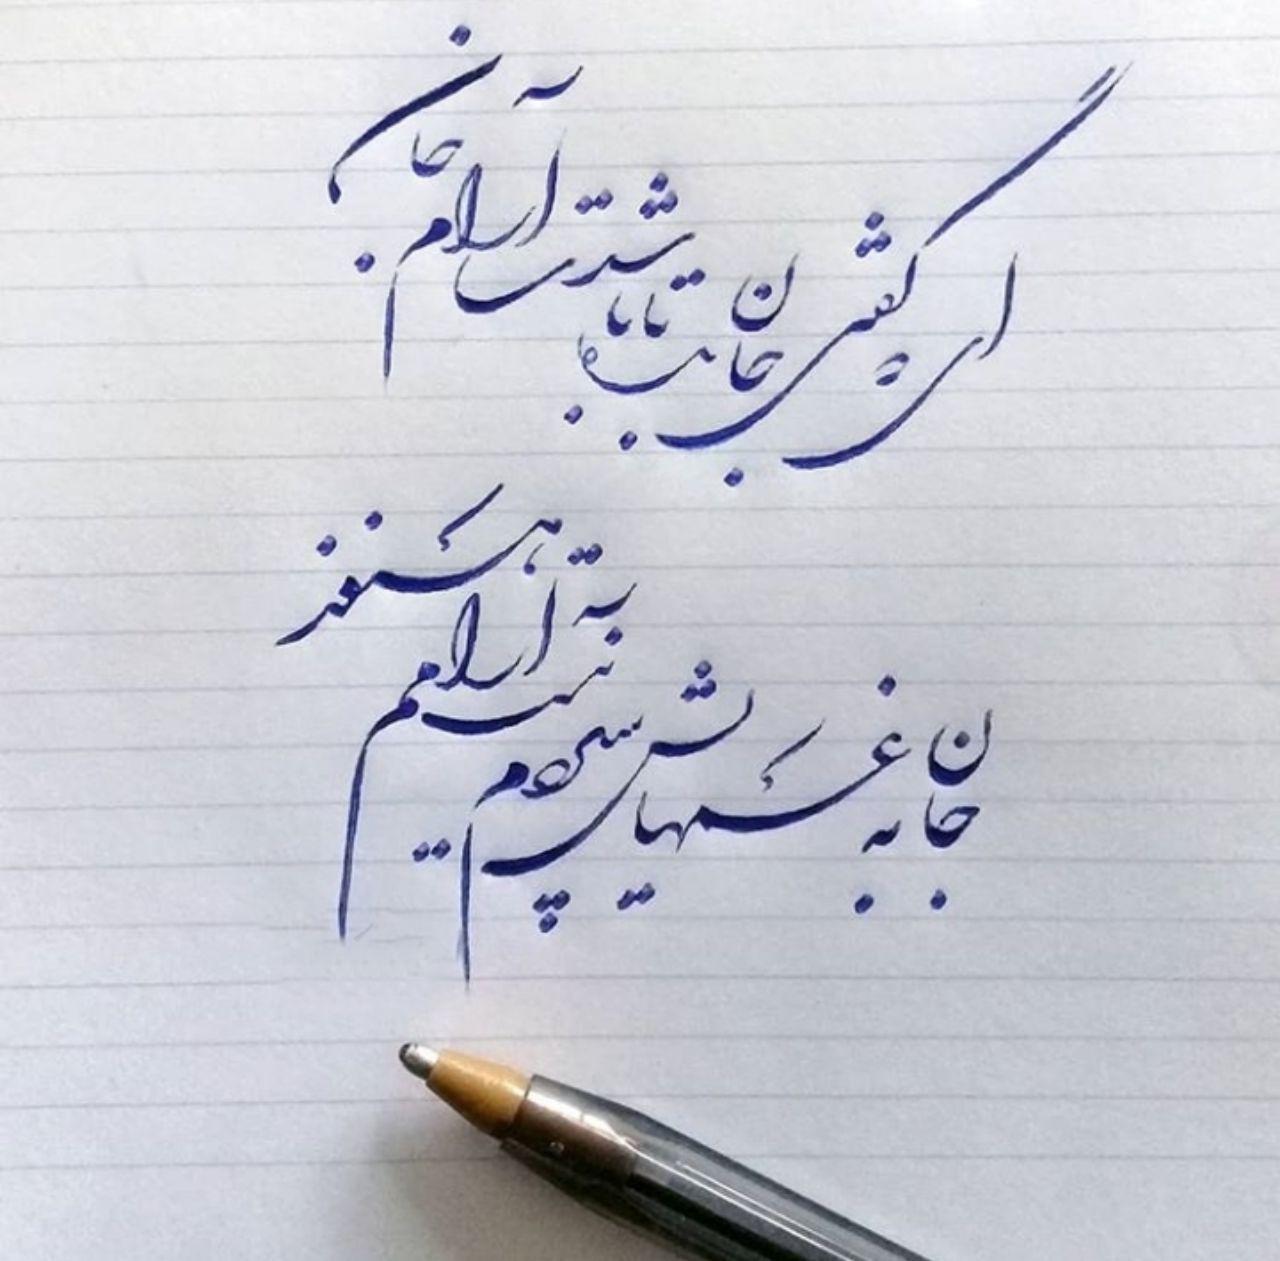 ای که گفتی جان بده تا باشدت آرام جان
جان به غمهایش سپردم نیست آرامم هنوز